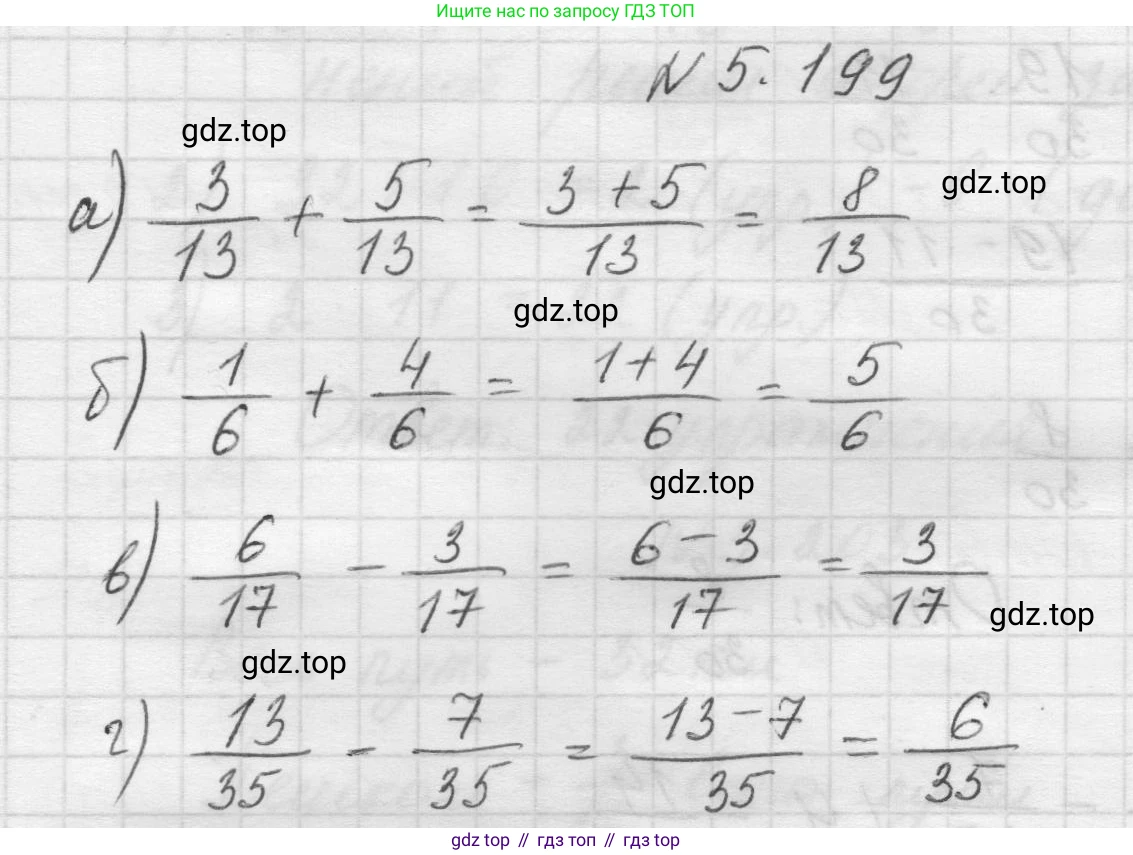 Ищите нас по запросу ГДЗ ТОП
N 5.199
gdz.top
а) 3/13 + 5/13 = 3+5/13 = 8/13
gdz.top
gdz.top
б) 1/6 + 4/6 = 1+4/6 = 5/6
gdz.top
в) 6/17 - 3/17 = 6-3/17 = 3/17
gdz.top
gdz.top
г) 13/35 - 7/35 = 13-7/35 = 6/35
gdz top // гдз топ // gdz.top